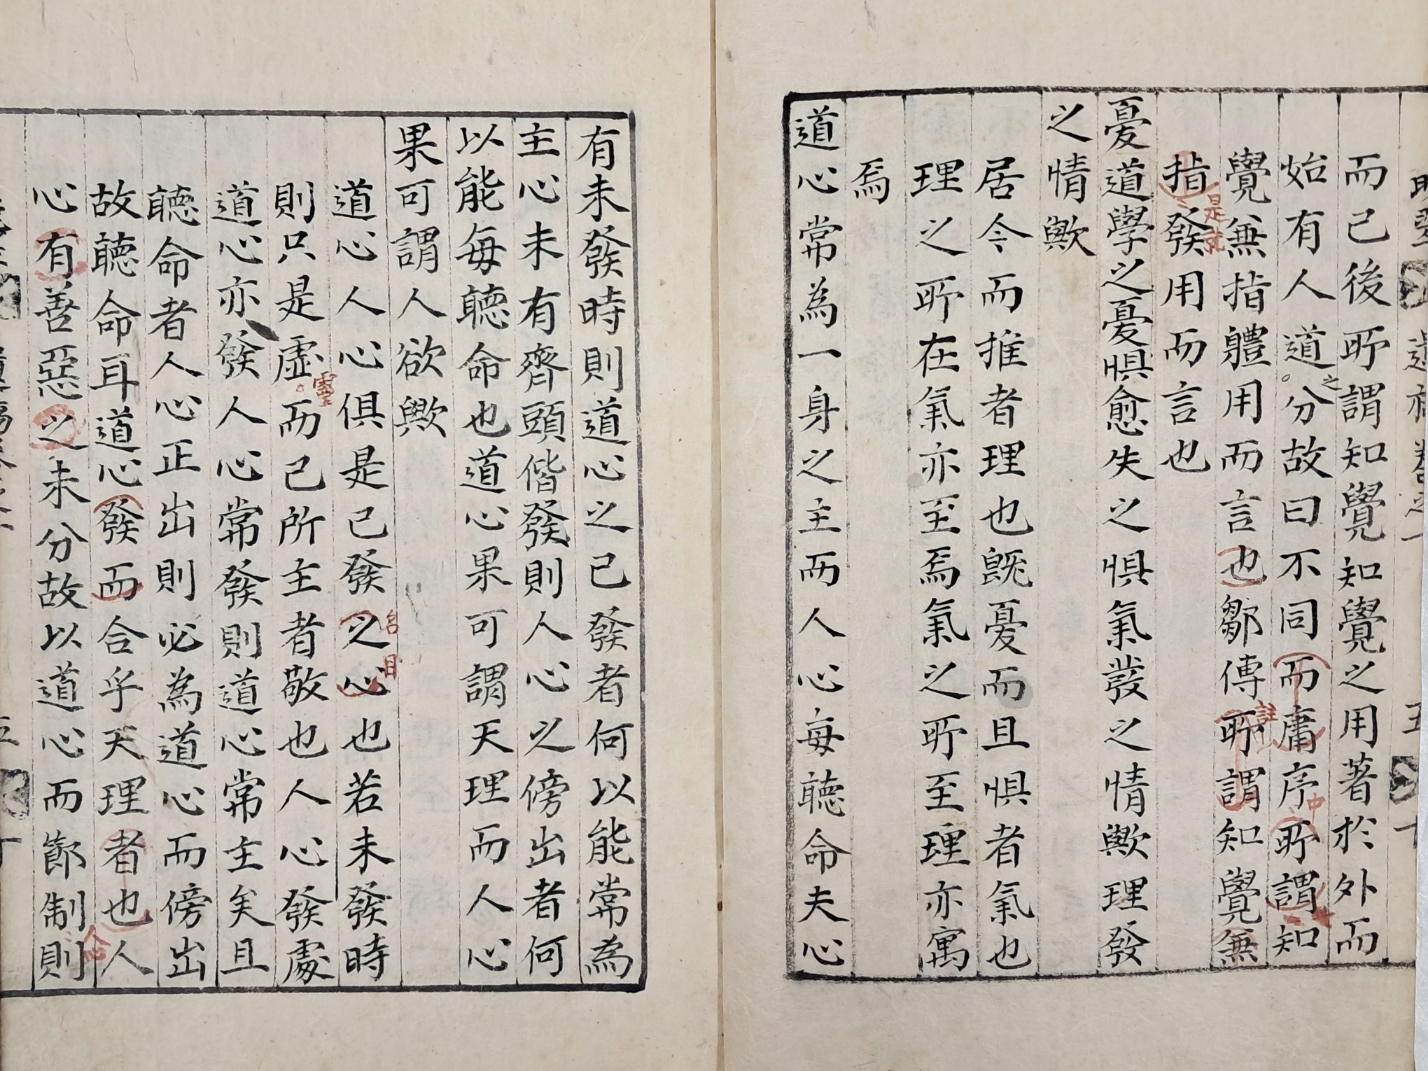 而已後所謂知覺知覺之用著於外而
始有人道之分故曰不同而庸序所謂知
覺無指體用而言也鄒傳所謂知覺無
指發用而言也
憂道學之憂惧愈失之惧氣發之情歟理發
之情歟
居今而推者理也旣憂而且惧者氣也
理之所在氣亦至焉氣之所至理亦寓
焉
道心常為一身之主而人心每聽命夫心
有未發時則道心之已發者何以能常為
主心未有齊頭偕發則人心之傍出者何
以能每聽命也道心果可謂天理而人心
果可謂人欲歟
道心人心俱是已發之心也若未發時
則只是虛靈而已所主者敬也人心發處
道心亦發人心常發則道心常主矣且
聽命者人心正出則必為道心而傍出
故聽命耳道心發而合乎天理者也人
心有善惡之未分故以道心而節制則